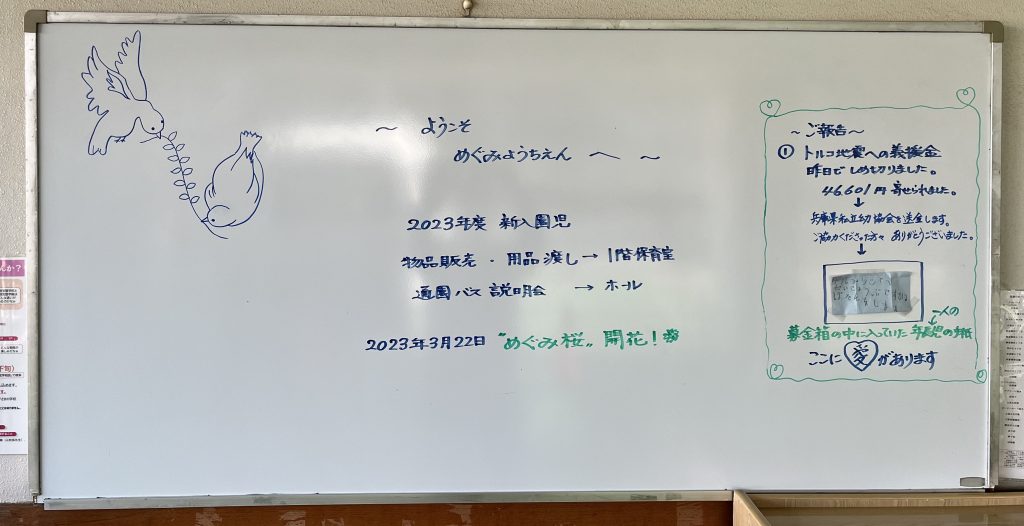 ～ ようこそ
めぐみようちえん へ ～
2023年度 新入園児
物品販売・用品渡し→1階保育室
通園バス説明会 → ホール
2023年3月22日 "めぐみ桜" 開花！
～ご報告～
① トルコ地震への義援金
昨日でしめ切りました。
46,601円寄せられました。
↓
兵庫県私立幼協会を送金します。
ご協力くださった方々 ありがとうございました。
↓
一人の
募金箱の中に入っていた 年長児の手紙
ここに愛があります